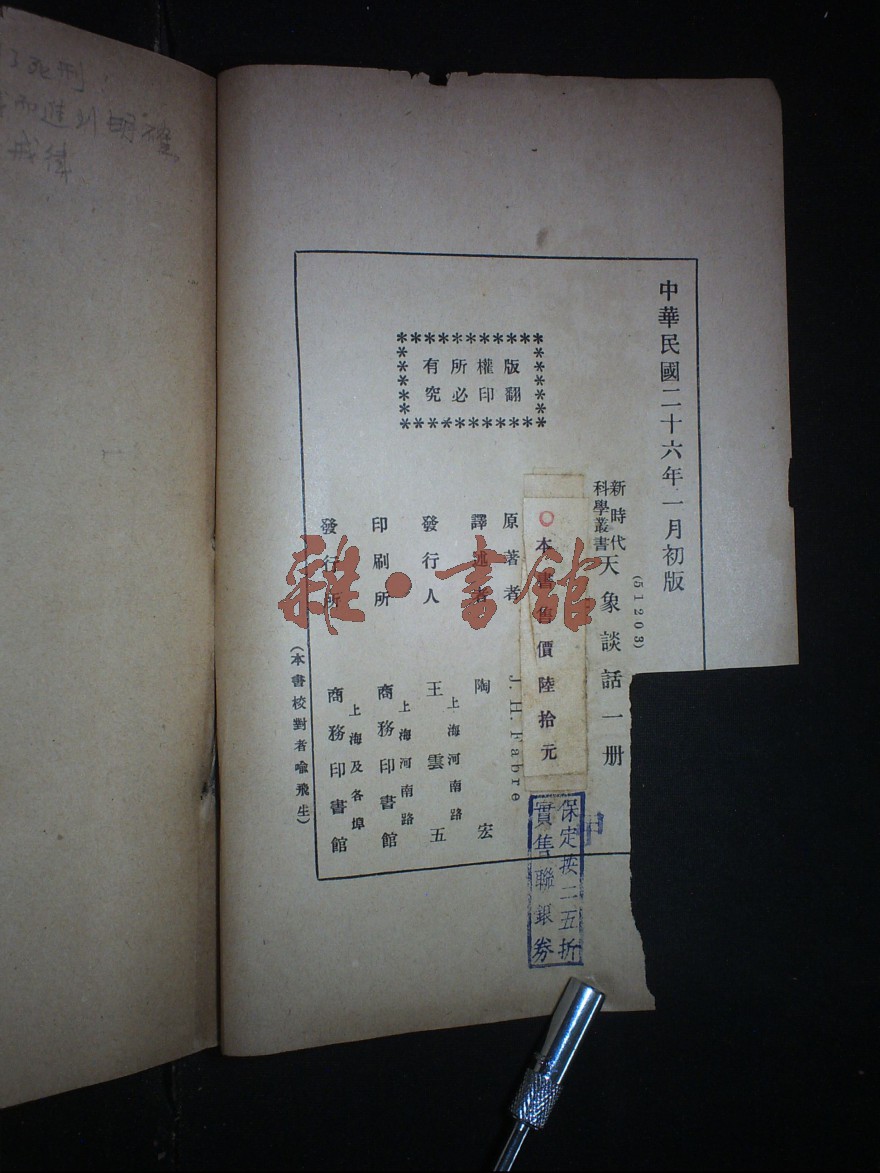 中華民國二十六年一月初版
(51203)
新時代
科學叢書
天象談話一册
版權所有
翻印必究
本書售價陸拾元
原著者 J. H. Fabre
譯述者 陶宏
發行人 王雲五
上海河南路
印刷所 商務印書館
上海河南路
發行所 商務印書館
上海及各埠
(本書校對者喻飛生)
保定按二五折
實售聯銀券
雜·書館
了死刑
而進到明確。
戒律